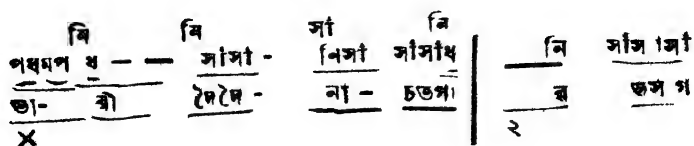 নি নি সা নি
পধমপ ধ – — সাসা - নিসা সাসাধ | — নি সাসাসা
ভা- রী দৈদৈ - না - চতগ। র
X ২